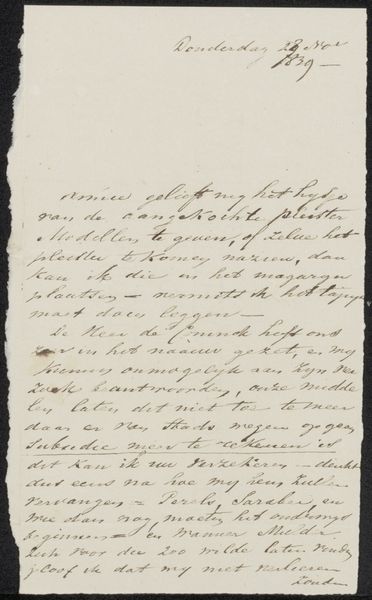 Donderdag 28 Nov
1839 —
Amice gelieft mij het lystje
van de aangekochte pleister
Modellen te geven, of zelve het
pleister te komen nazien, dan
kan ik die in het magazyn
plaatsen — vermits ik het
moet doen leggen —
De Heer de heeft ons
zeer in het naauw gezet, en wy
kunnen onmogelyk aan zyn ver
zoek beantwoorden, onze midde
len laten dit niet toe te meer
daar er van Stads wegen op geen
Subsidie meer te rekenen is
dit kan ik uw verzekeren — denkt
dus eens na hoe wy hem zullen
vervangen = en
wie dan nog moeten het
beginnen = en wanneer
zich voor die 200 wilde laten vinden
geloof ik dat wy niet verliezen
zouden